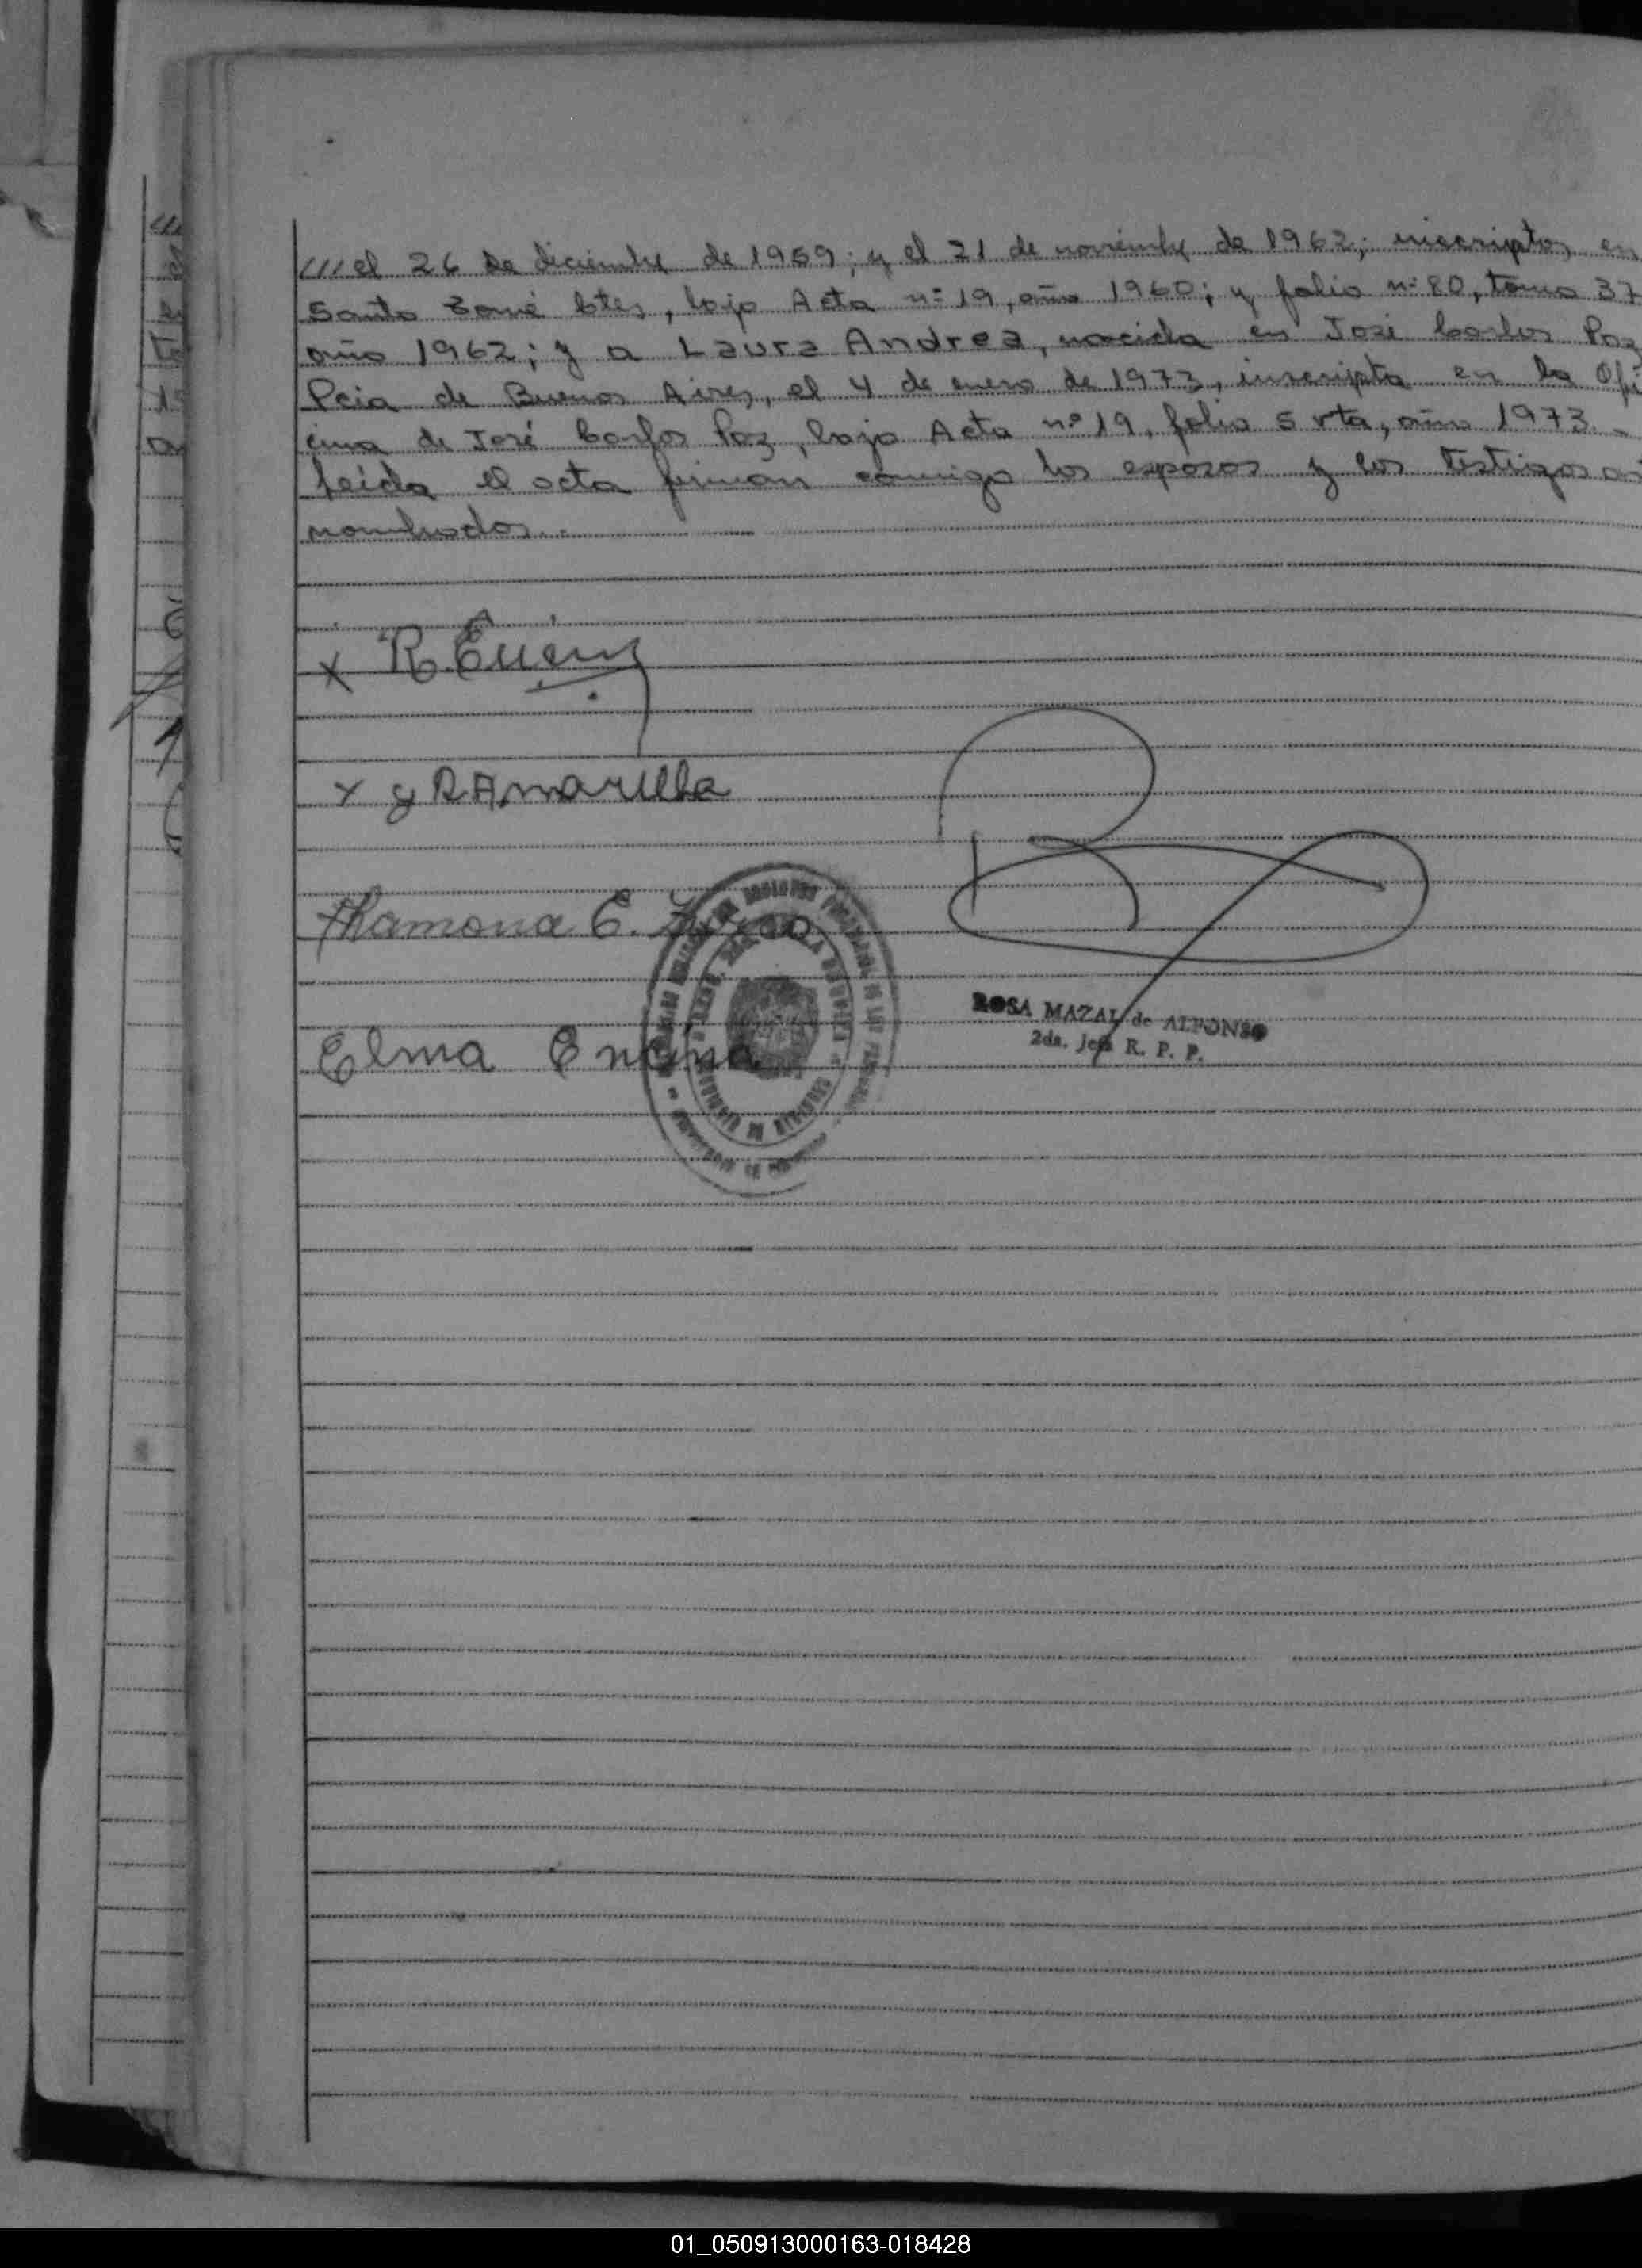 ///el 26 de diciembre de 1959; y el 21 de noviembre de 1962; inscriptos en
Santo Tomé Ctes, bajo Acta nº 19, año 1960; y folio nº 80, tomo 37
año 1962; y a Laura Andrea, nacida en José Carlos Paz
Pcia de Buenos Aires, el 4 de enero de 1973, inscripta en la Ofi
cina de José Carlos Paz, bajo Acta nº 19, folio 5 vta, año 1973.-
Leída el acta firman conmigo los esposos y los testigos
nombrados.-
x R.
x y R Amarilla
Ramona E.
Elma Encina
ROSA MAZAL de ALFONSO
2da. Jefe R. P. P.
01_050913000163-018428